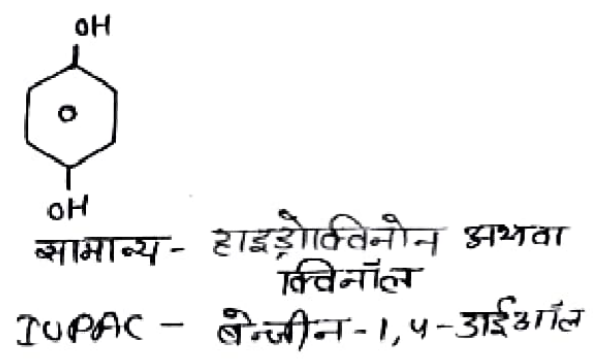 OH
OH
सामान्य - हाइड्रोक्विनोन अथवा
क्विनॉल
IUPAC - बेन्जीन-1,4-डाईऑल